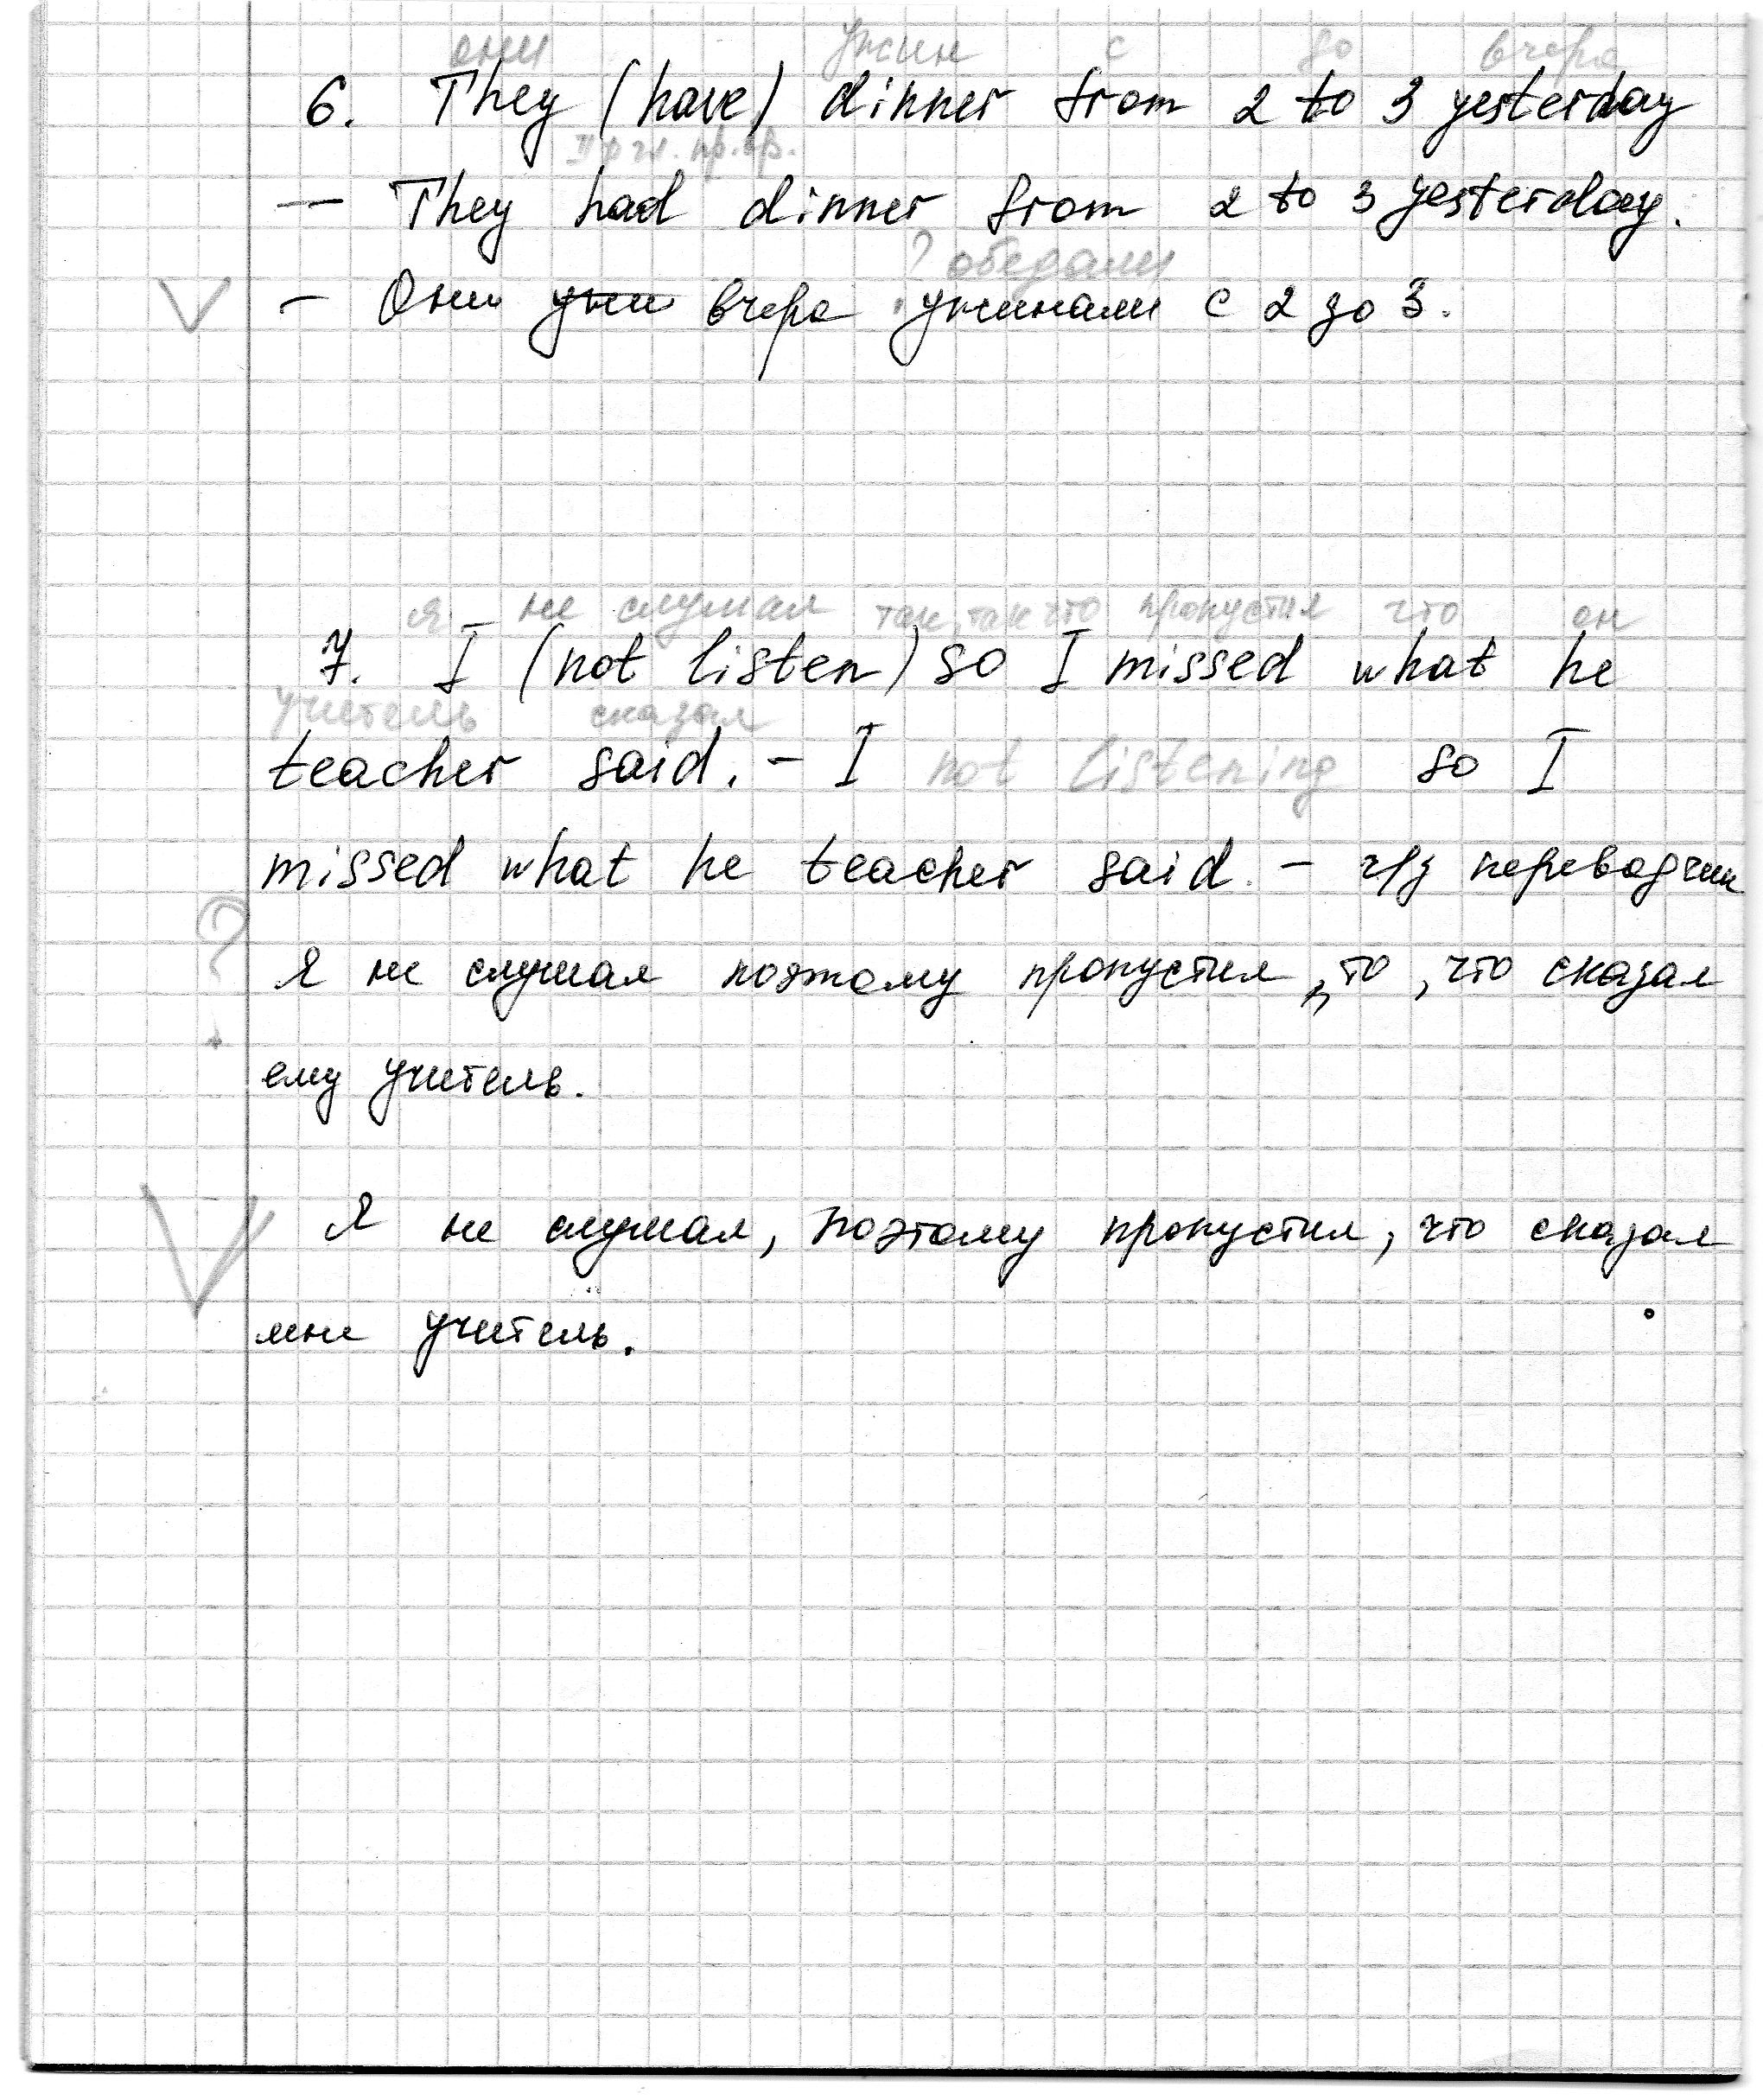 они ужин с до вчера
6. They (have) dinner from 2 to 3 yesterday
II ф гл. пр. вр.
— They had dinner from 2 to 3 yesterday.
? обедали
V – Они ужи вчера ужинали с 2 до 3.
я не слушал так, так что пропустил что он
7. I (not listen) so I missed what he
учитель сказал
teacher said. – I not listening so I
missed what he teacher said. – ч/з переводчик
? Я не слушал поэтому пропустил, то, что сказал
ему учитель.
V Я не слушал, поэтому пропустил, что сказал
мне учитель.